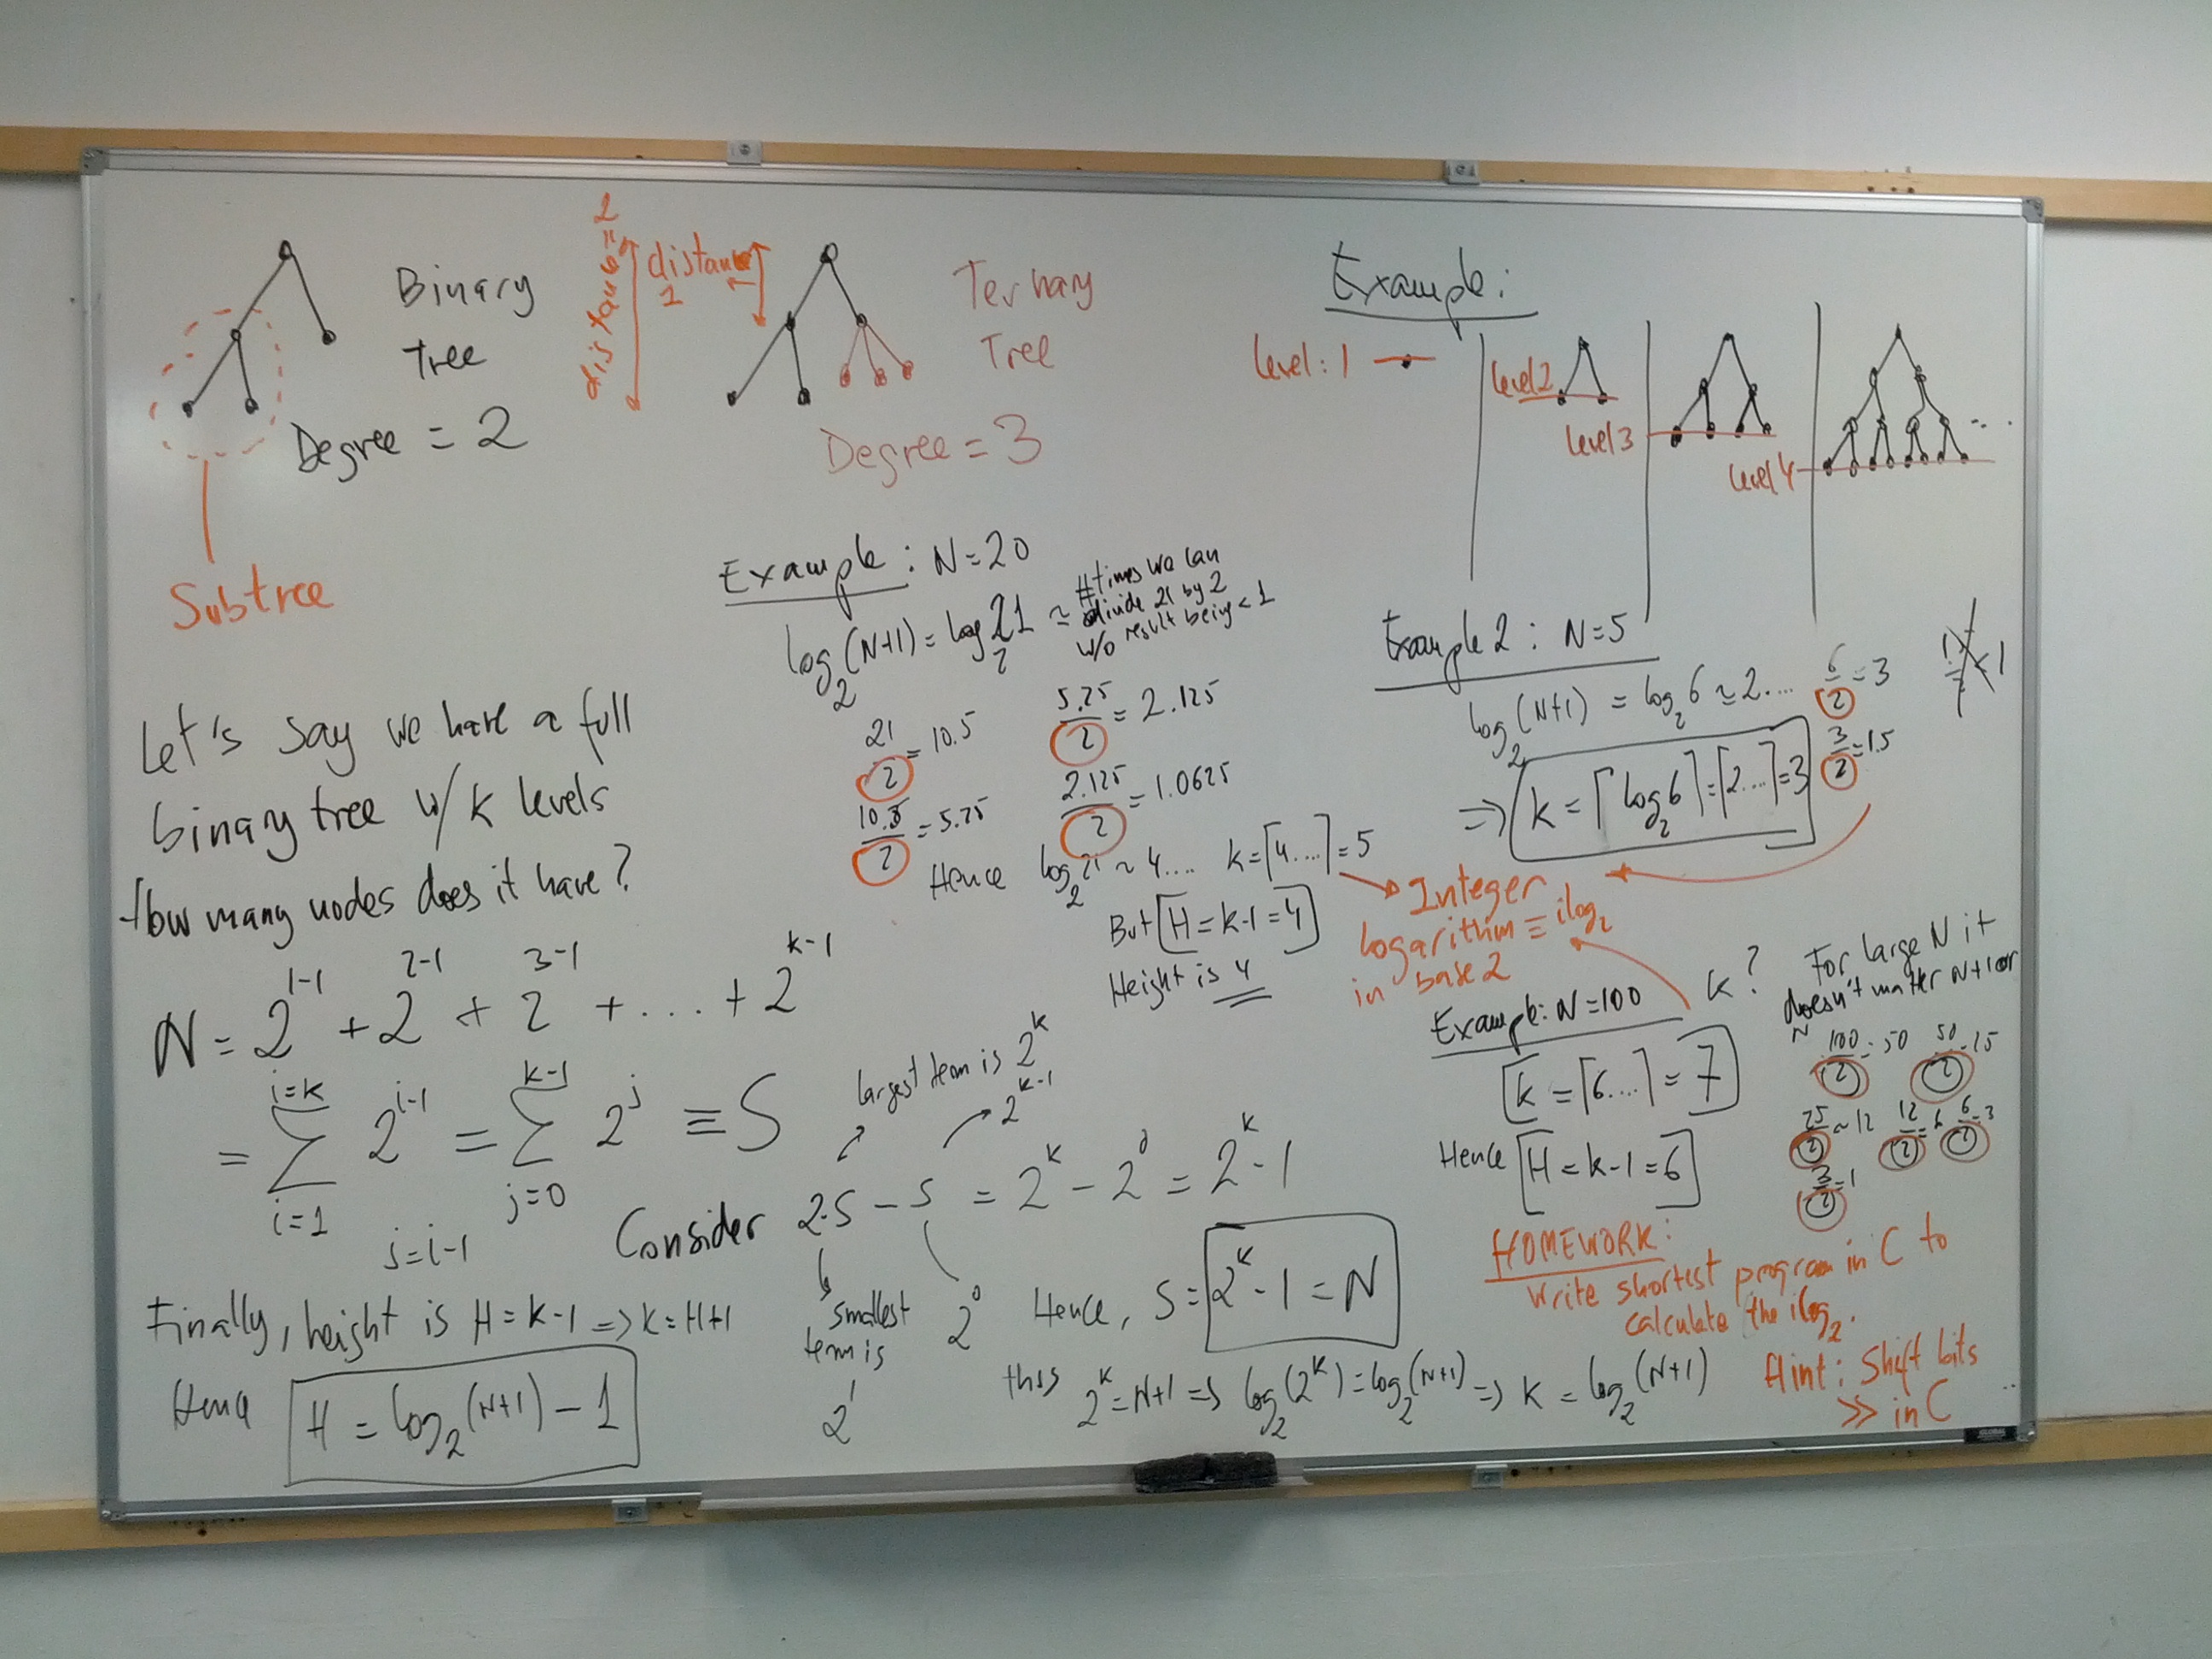 Binary
Tree
Degree = 2
Subtree
distance = 2
distance
1
Ternary
Tree
Degree = 3
Example:
level: 1
level 2
level 3
level 4
...
Let's say we have a full
binary tree w/ k levels
How many nodes does it have?
N = 2^{1-1} + 2^{2-1} + 2^{3-1} + ... + 2^{k-1}
= ∑_{i=1}^{i=k} 2^{i-1} = ∑_{j=0}^{k-1} 2^j ≡ S
j=i-1
largest term is 2^k
2^{k-1}
Consider 2·S - S = 2^k - 2^0 = 2^k - 1
smallest
term is
2^1
2^0
Hence, S = 2^k - 1 = N
thus 2^k = N+1 => log_2(2^k) = log_2(N+1) => k = log_2(N+1)
Finally, height is H = k-1 => k = H+1
Hence H = log_2(N+1) - 1
Example: N=20
log_2(N+1) = log_2 21 ≈
#times we can
divide 21 by 2
w/o result being < 1
21/2 = 10.5
10.5/2 = 5.25
5.25/2 = 2.125
2.125/2 = 1.0625
Hence log_2 21 ~ 4.... k = ⌈4....⌉ = 5
But H = k-1 = 4
Height is 4
Example 2: N=5
log_2(N+1) = log_2 6 ~ 2....
6/2 = 3
3/2 = 1.5
=> k = ⌈log_2 6⌉ = ⌈2....⌉ = 3
Integer
logarithm ≡ ilog_2
in base 2
Example: N=100 k?
k = ⌈6....⌉ = 7
Hence H = k-1 = 6
For large N it
doesn't matter N+1 or
N
100/2 = 50
50/2 = 25
25/2 ~ 12
12/2 = 6
6/2 = 3
3/2 = 1
HOMEWORK:
Write shortest program in C to
calculate the ilog_2.
Hint: Shift bits
>> in C
GLOBAL